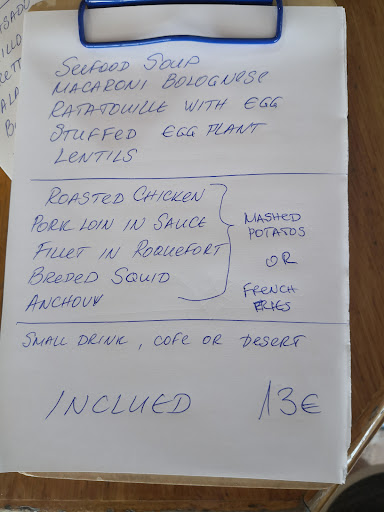 SEEFOOD SOUP
MACARONI BOLOGNESE
RATATOUILLE WITH EGG
STUFFED EGG PLANT
LENTILS
ROASTED CHICKEN
PORK LOIN IN SAUCE
FILLET IN ROQUEFORT
BREDED SQUID
ANCHOVY
MASHED
POTATOS
OR
FRENCH
FRIES
SMALL DRINK, COFE OR DESERT
INCLUED 13€